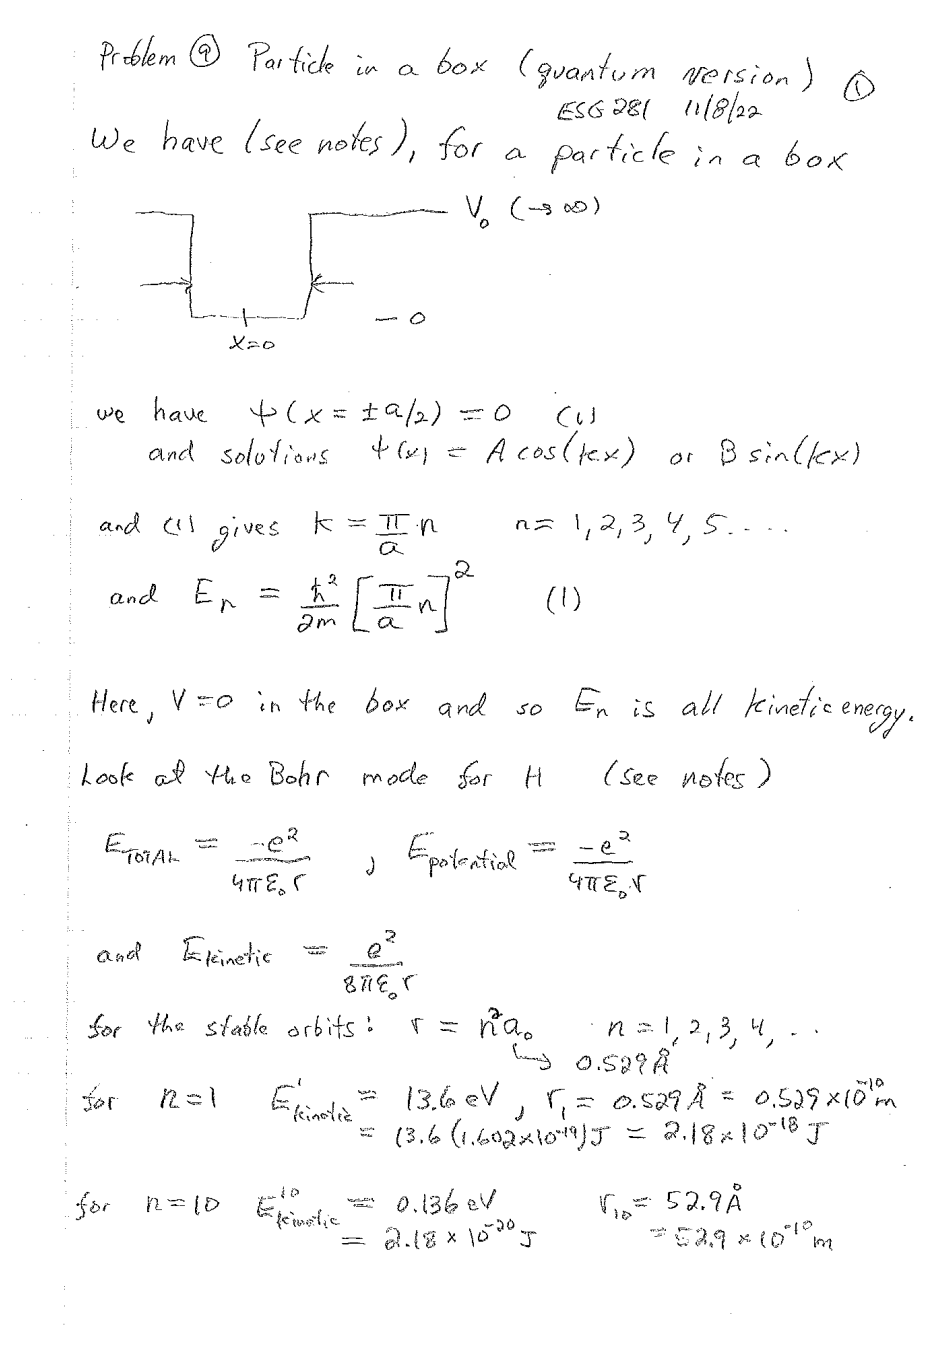 Problem ⑨ Particle in a box (quantum version) ①
ESG 281 11/8/22
We have (see notes), for a particle in a box
V₀ (→∞)
– 0
X=0
we have ψ(x = ±a/2) = 0 (1)
and solutions ψ(x) = A cos(kx) or B sin(kx)
and (1) gives k = π/a n n = 1, 2, 3, 4, 5....
and Eₙ = ħ²/2m [π/a n]² (1)
Here, V=0 in the box and so Eₙ is all kinetic energy.
Look at the Bohr mode for H (see notes)
E_TOTAL = -e²/4πε₀r , E_potential = -e²/4πε₀r
and E_kinetic = e²/8πε₀r
for the stable orbits: r = n²a₀ n = 1, 2, 3, 4, ...
↳ 0.529Å
for n=1 E¹_kinetic = 13.6 eV , r₁ = 0.529Å = 0.529×10⁻¹⁰m
= 13.6 (1.602×10⁻¹⁹)J = 2.18×10⁻¹⁸ J
for n=10 E¹⁰_kinetic = 0.136 eV r₁₀ = 52.9Å
= 2.18 × 10⁻²⁰ J = 52.9 × 10⁻¹⁰ m